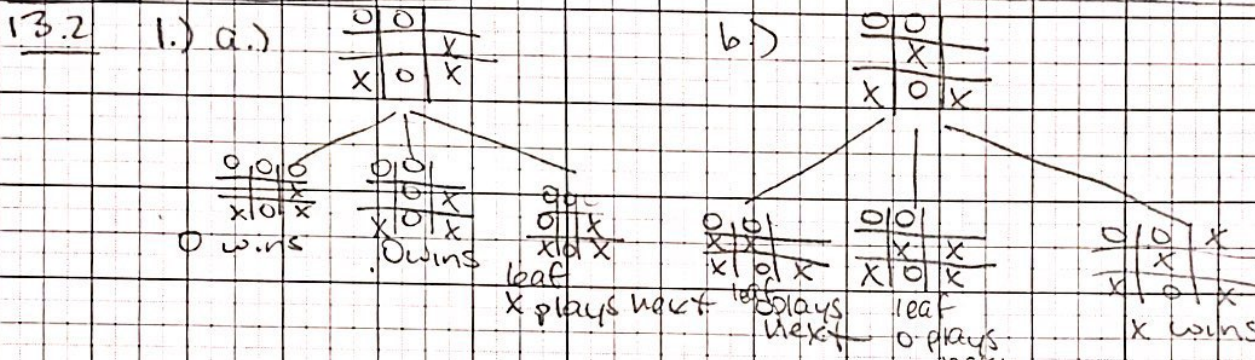 13.2 1.) a.) b.)
O O
X
X O X
O O
X
X O X
O O O
X
X O X
O wins
O O
O X
X O X
O wins
O O
O X
X O X
leaf
X plays next
O O
X X
X O X
leaf
O plays
next
O O
X X
X O X
leaf
O plays
O O X
X
X O X
X wins